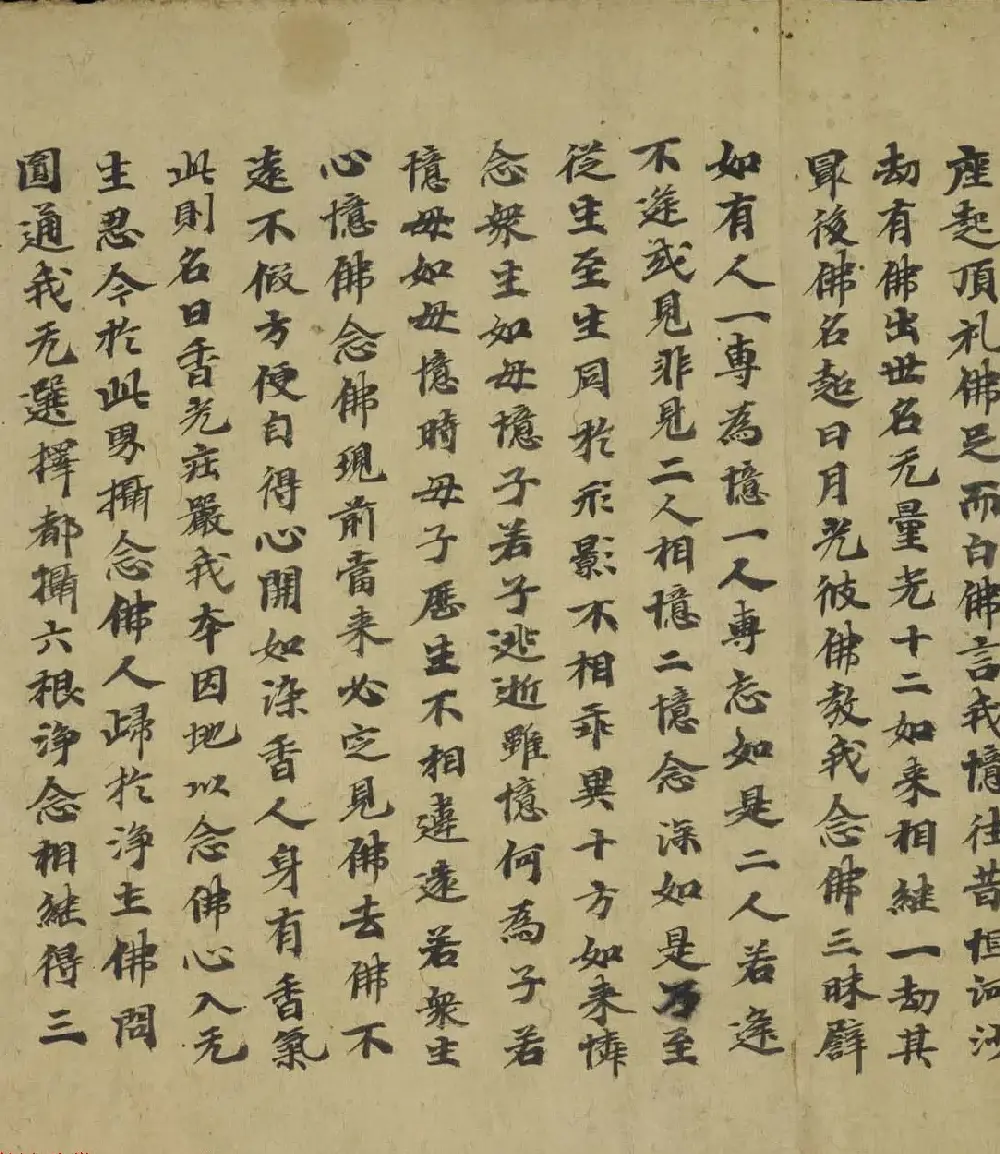 座起頂礼佛足而白佛言我憶往昔恒河沙
劫有佛出世名无量光十二如来相継一劫其
冣後佛名超日月光彼佛教我念佛三昧譬
如有人一專為憶一人專忘如是二人若逢
不逢或見非見二人相憶二憶念深如是乃至
從生至生同於形影不相乖異十方如来憐
念衆生如母憶子若子逃逝雖憶何為子若
憶母如母憶時母子歴生不相違遠若衆生
心憶佛念佛現前當来必定見佛去佛不
遠不假方便自得心開如染香人身有香氣
此則名曰香光莊嚴我本因地以念佛心入无
生忍今於此界攝念佛人歸於淨土佛問
圓通我无選擇都攝六根淨念相継得三